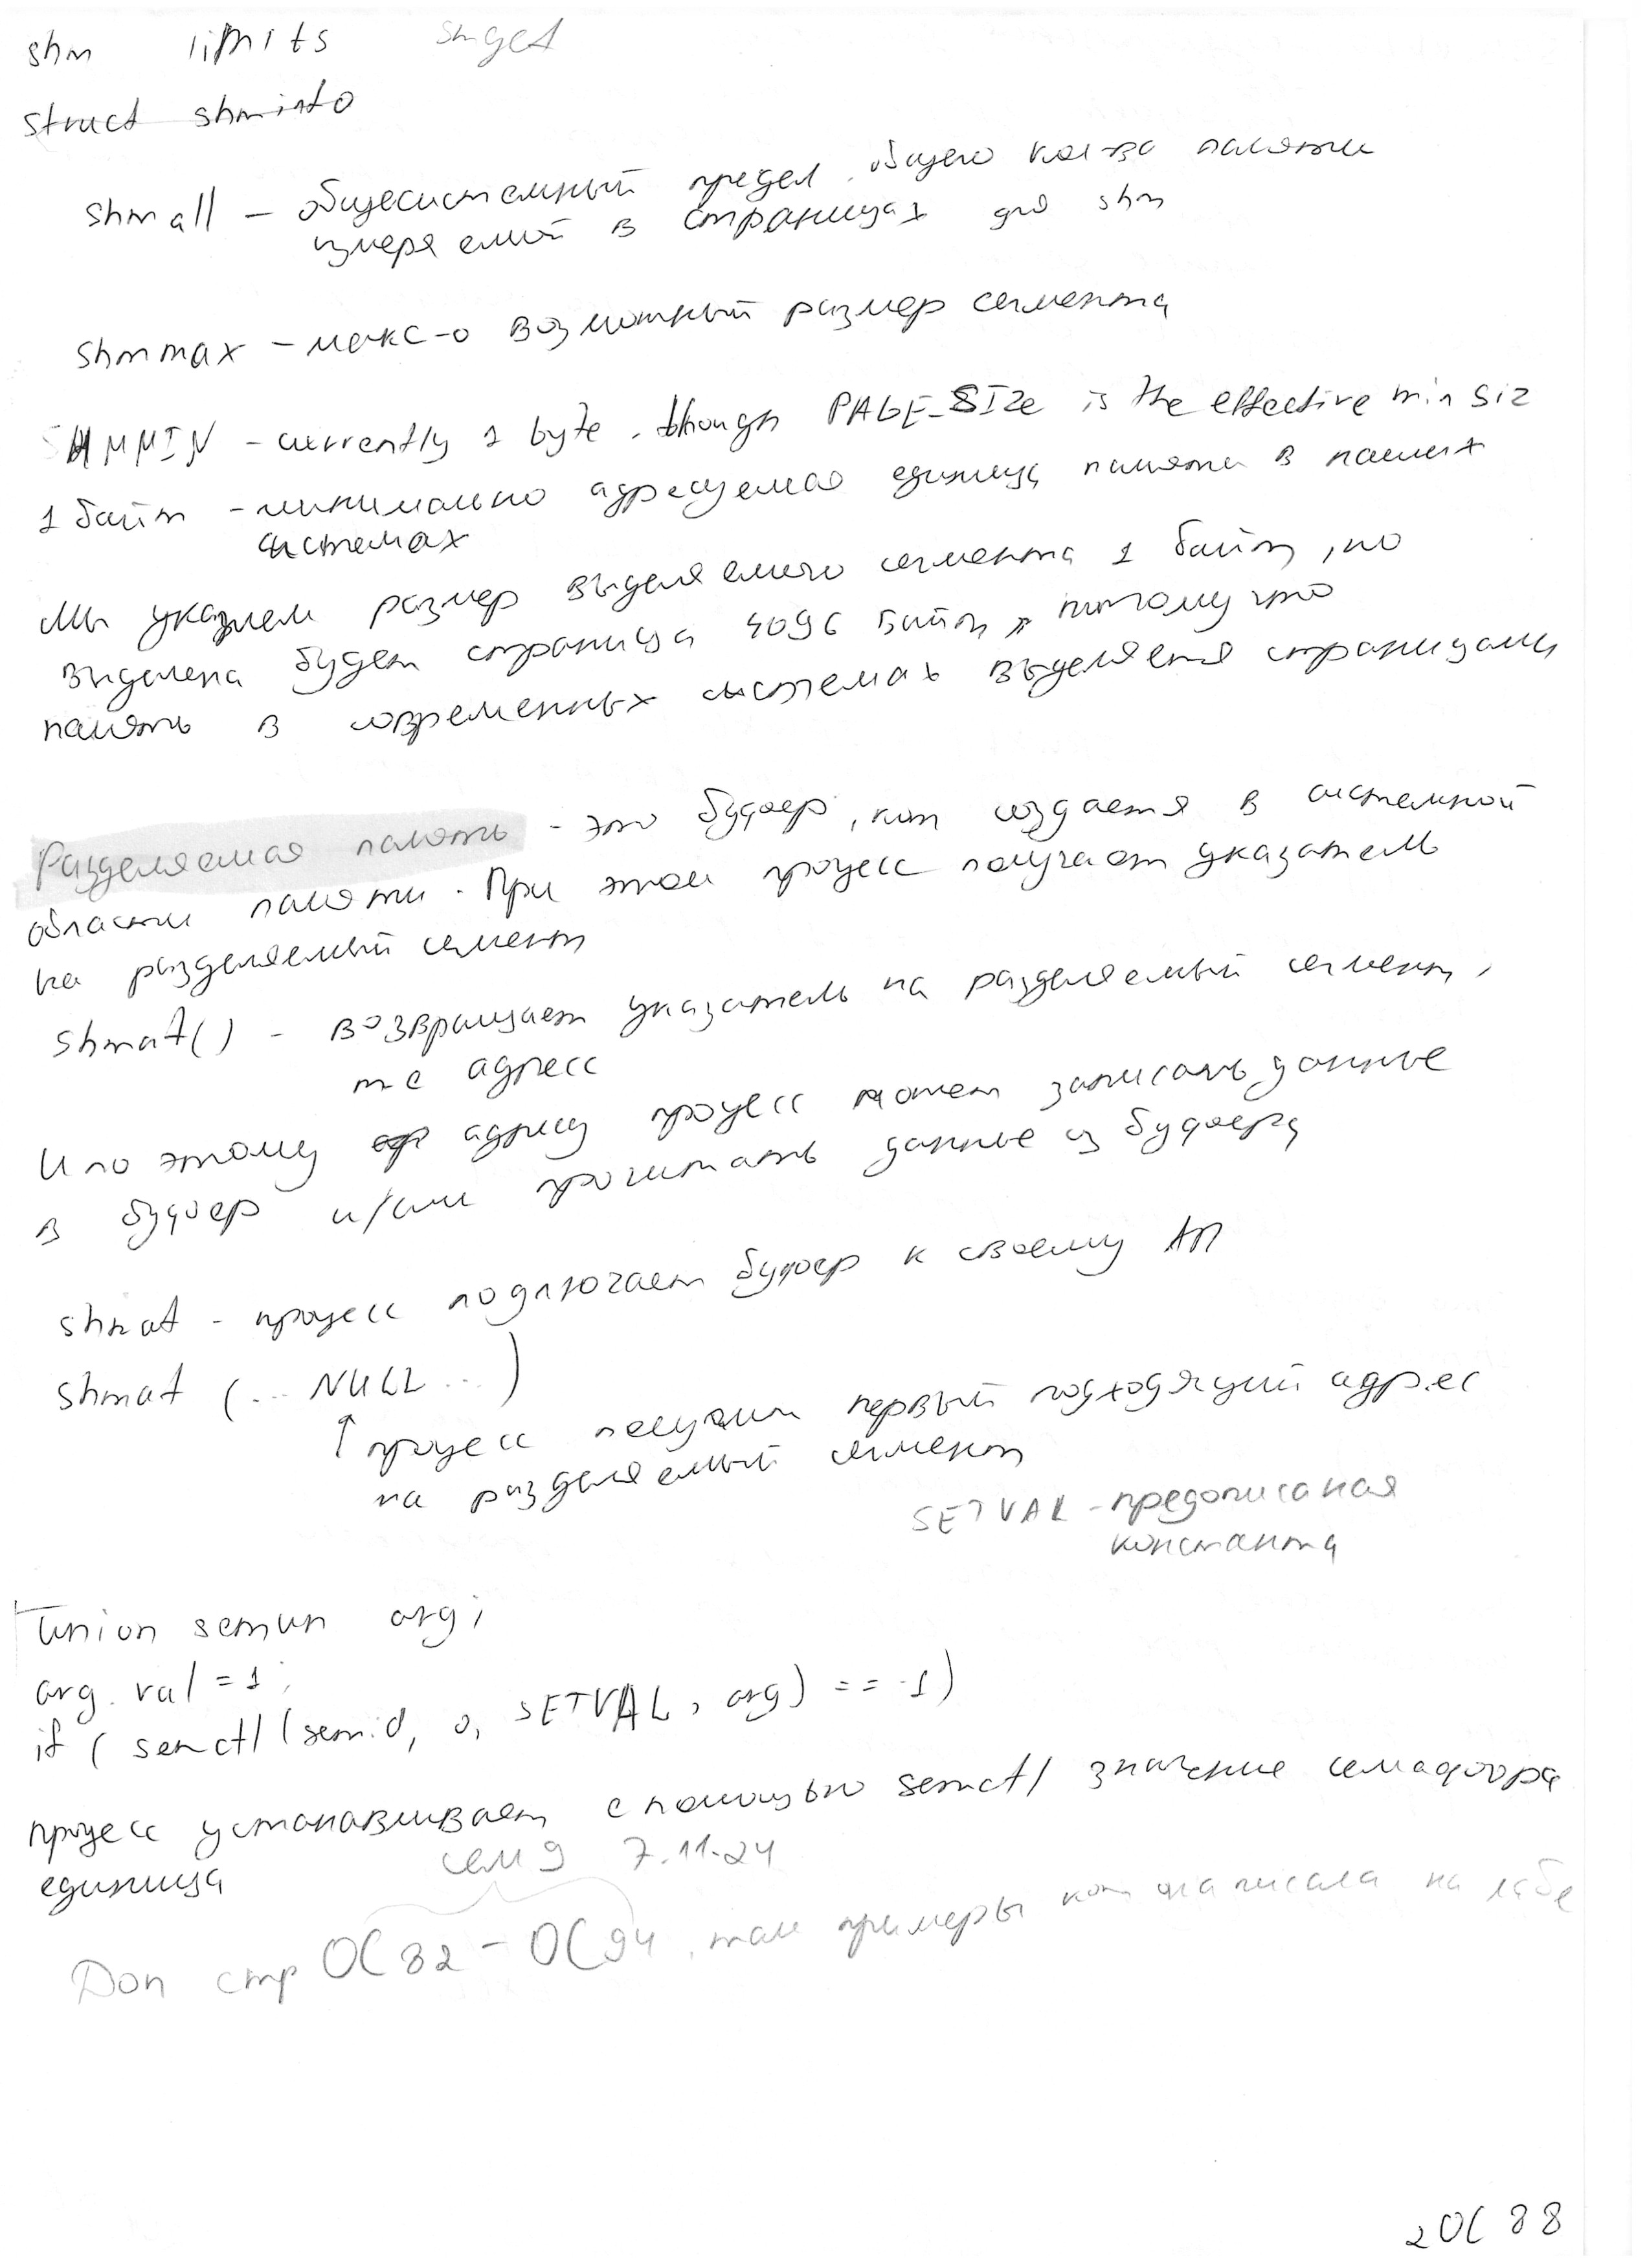 shm limits shget
struct shminfo
shmall – общесистемный предел общего кол-ва памяти
измеряемый в страницах для shm
shmmax – макс-о возможный размер сегмента
SHMMIN – currently 1 byte, though PAGE_SIZE is the effective min siz
1 байт – минимально адресуемая единица памяти в наших
системах
Мы укажем размер выделяемого сегмента 1 байт, но
выделена будет страница 4096 байт, потому что
память в современных системах выделяется страницами
Разделяемая память – это буфер, кот создается в системной
области памяти. При этом процесс получает указатель
на разделяемый сегмент
shmat() – возвращает указатель на разделяемый сегмент,
т е адресс
И по этому адресу процесс может записать данные
в буфер и/или прочитать данные из буфера
shmat – процесс подключает буфер к своему АП
shmat (... NULL ...)
↑ процесс получит первый подходящий адрес
на разделяемый сегмент
SETVAL – предописаная
константа
union semun arg;
arg.val = 1;
if (semctl(semid, 0, SETVAL, arg) == -1)
процесс устанавливает с помощью semctl значение семафора
единица
сем 9 7.11.24
Доп стр ОС 82 – ОС 94, там примеры кот написала на лабе
2 ОС 88